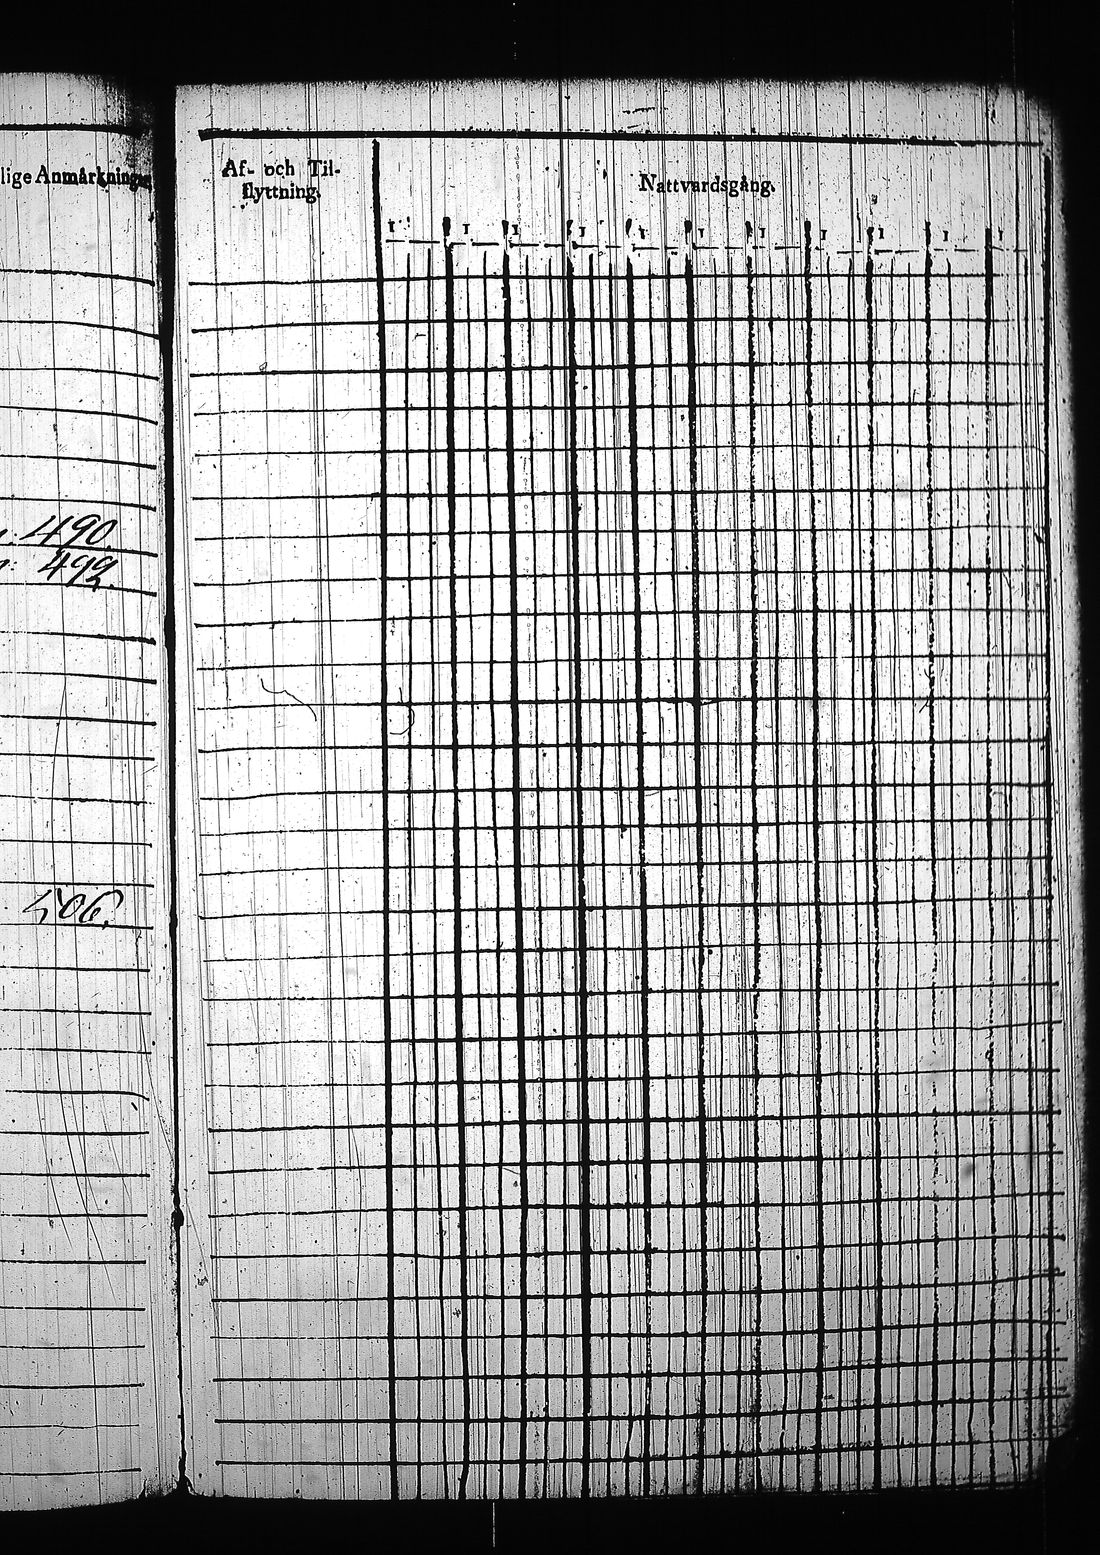 lige Anmärkningar
490
492
506.
Af- och Til-
flyttning.
Nattvardsgång.
1 1 1 1 1 1 1 1 1 1 1